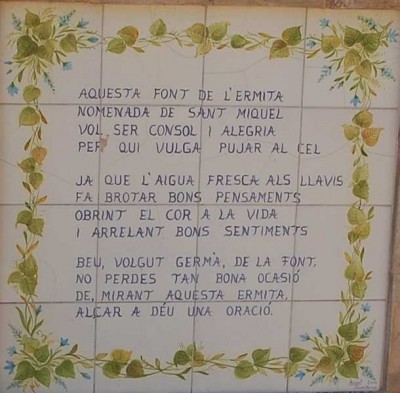 AQUESTA FONT DE L'ERMITA
NOMENADA DE SANT MIQUEL
VOL SER CONSOL I ALEGRIA
PER QUI VULGA PUJAR AL CEL
JA QUE L'AIGUA FRESCA ALS LLAVIS
FA BROTAR BONS PENSAMENTS
OBRINT EL COR A LA VIDA
I ARRELANT BONS SENTIMENTS
BEU, VOLGUT GERMÀ, DE LA FONT,
NO PERDES TAN BONA OCASIÓ
DE, MIRANT AQUESTA ERMITA,
ALÇAR A DÉU UNA ORACIÓ.